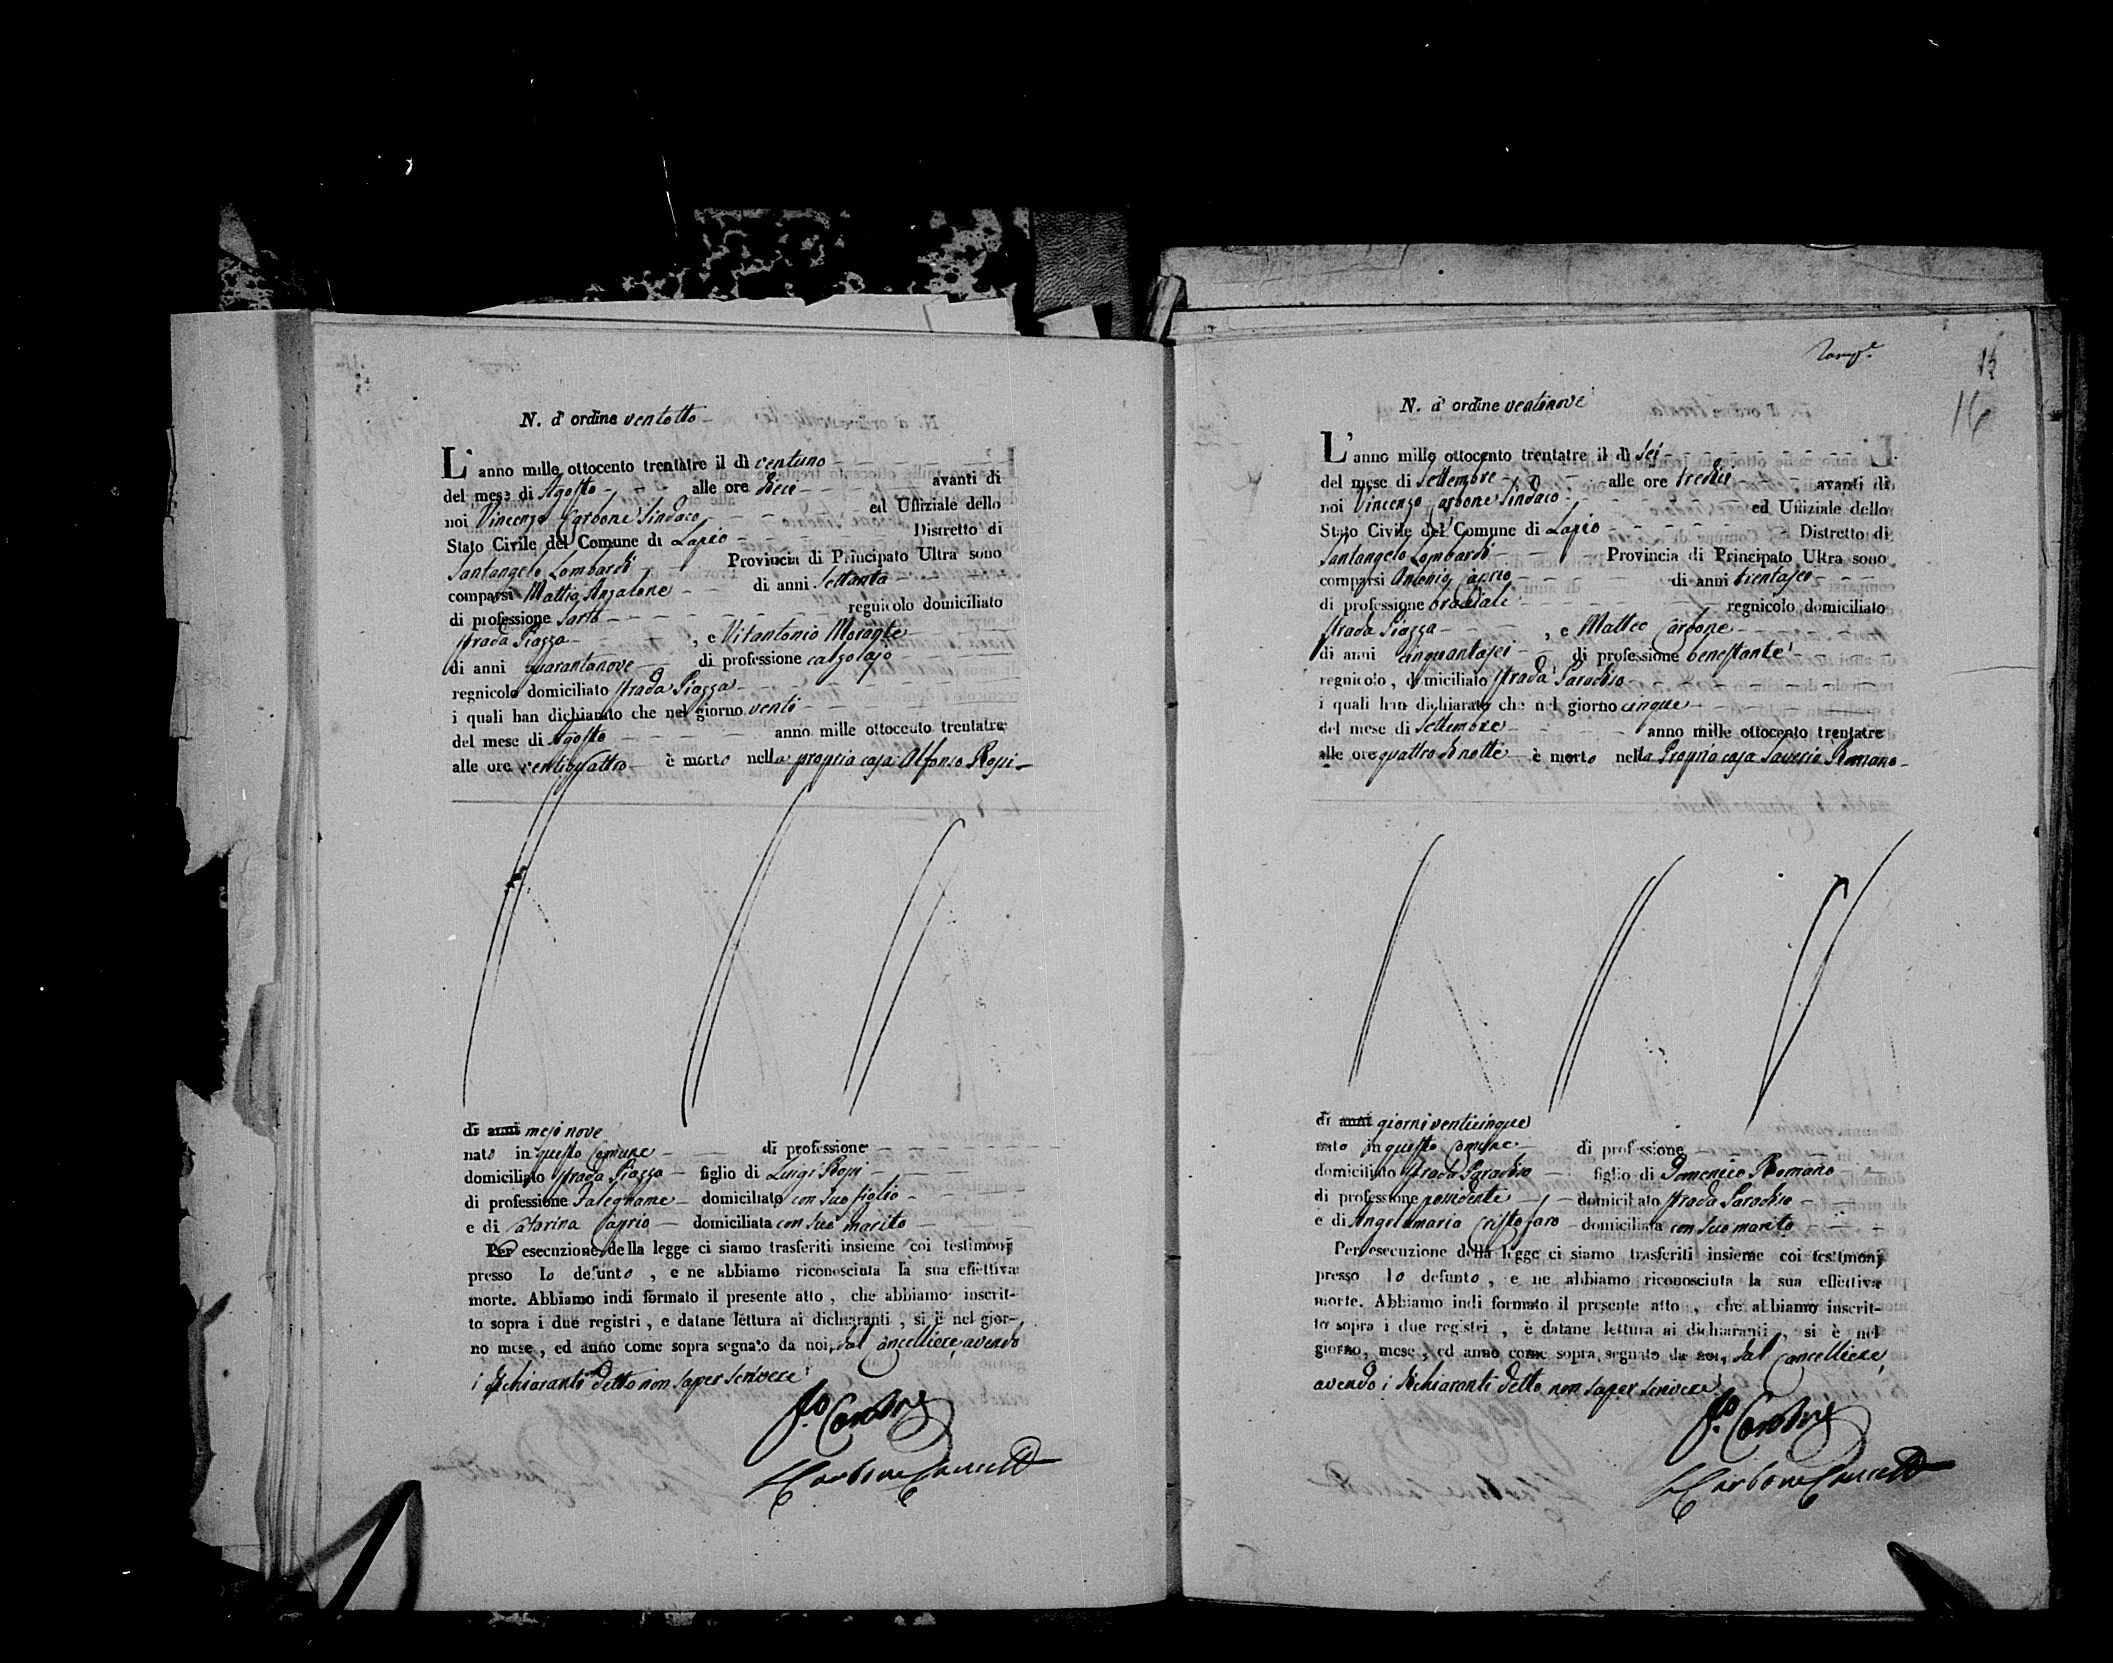 N. d' ordine ventotto
L' anno mille ottocento trentatre il dì ventuno
del mese di Agosto alle ore dieci avanti di
noi Vincenzo Carbone Sindaco ed Uffiziale dello
Stato Civile del Comune di Lapio Distretto di
Santangelo Lombardi Provincia di Principato Ultra sono
comparsi Mattia Anzalone di anni Settanta
di professione Sarto regnicolo domiciliato
strada Piazza , e Vitantonio Morante
di anni quarantanove di professione calzolajo
regnicolo domiciliato strada Piazza
i quali han dichiarato che nel giorno venti
del mese di Agosto anno mille ottocento trentatre
alle ore ventiquattro è morto nella propria casa Alfonso Ropi
di anni mesi nove
nato in questo Comune di professione
domiciliato strada Piazza figlio di Luigi Ropi
di professione Falegname domiciliato con suo figlio
e di Catarina Caprio domiciliata con suo marito
Per esecuzione della legge ci siamo trasferiti insieme coi testimonj
presso lo defunto , e ne abbiamo riconosciuta la sua effettiva
morte. Abbiamo indi formato il presente atto , che abbiamo inscrit-
to sopra i due registri , e datane lettura ai dichiaranti , si è nel gior-
no mese , ed anno come sopra segnato da noi, dal Cancelliere, avendo
i dichiaranti detto non saper scrivere
Carbone
Carbone Cancell
16
N. d' ordine ventinove
L' anno mille ottocento trentatre il dì sei
del mese di Settembre alle ore tredici avanti di
noi Vincenzo Carbone Sindaco ed Uffiziale dello
Stato Civile del Comune di Lapio Distretto di
Santangelo Lombardi Provincia di Principato Ultra sono
comparsi Antonio Caprio di anni trentasei
di professione bracciale regnicolo domiciliato
strada Piazza , e Matteo Carbone
di anni cinquantasei di professione benestante
regnicolo , domiciliato strada Paradiso
i quali han dichiarato che nel giorno cinque
del mese di Settembre anno mille ottocento trentatre
alle ore quattro di notte è morto nella Propria casa Saverio Romano
di anni giorni venticinque
nato in questo Comune di professione
domiciliato strada Paradiso figlio di Domenico Romano
di professione possidente domiciliato strada Paradiso
e di Angelamaria Cristofaro domiciliata con suo marito
Per esecuzione della legge ci siamo trasferiti insieme coi testimonj
presso lo defunto , e ne abbiamo riconosciuta la sua effettiva
morte. Abbiamo indi formato il presente atto , che abbiamo inscrit-
to sopra i due registri , e datane lettura ai dichiaranti , si è nel
giorno, mese , ed anno come sopra segnato da noi, dal Cancelliere,
avendo i dichiaranti detto non saper scrivere
Carbone
Carbone Cancell